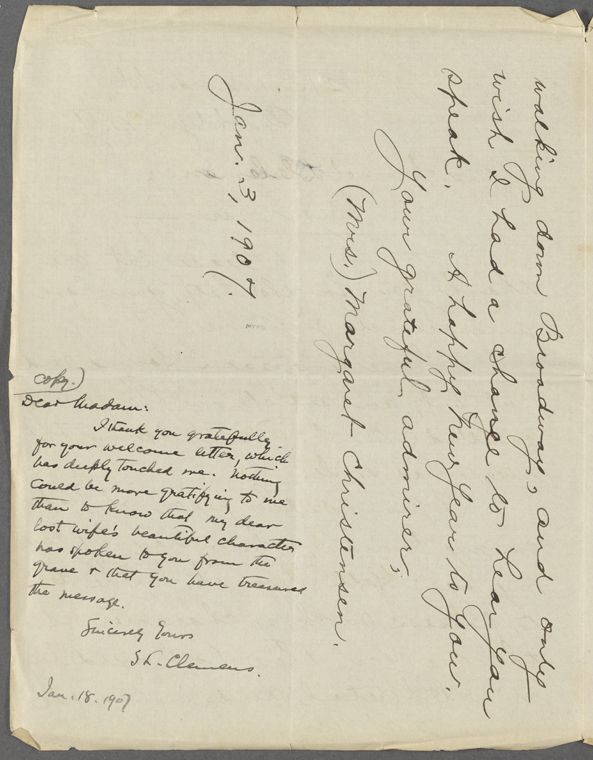 walking down Broadway, and only
wish I had a chance to hear you
speak. A happy New Year to you.
Your grateful admirer,
(Mrs.) Margaret Christensen.
Jan. 3, 1907.
copy.)
Dear Madam:
I thank you gratefully
for your welcome letter, which
has deeply touched me. Nothing
could be more gratifying to me
than to know that my dear
lost wife's beautiful character
has spoken to you from the
grave & that you have treasured
the message.
Sincerely Yours
S L. Clemens.
Jan. 18. 1907